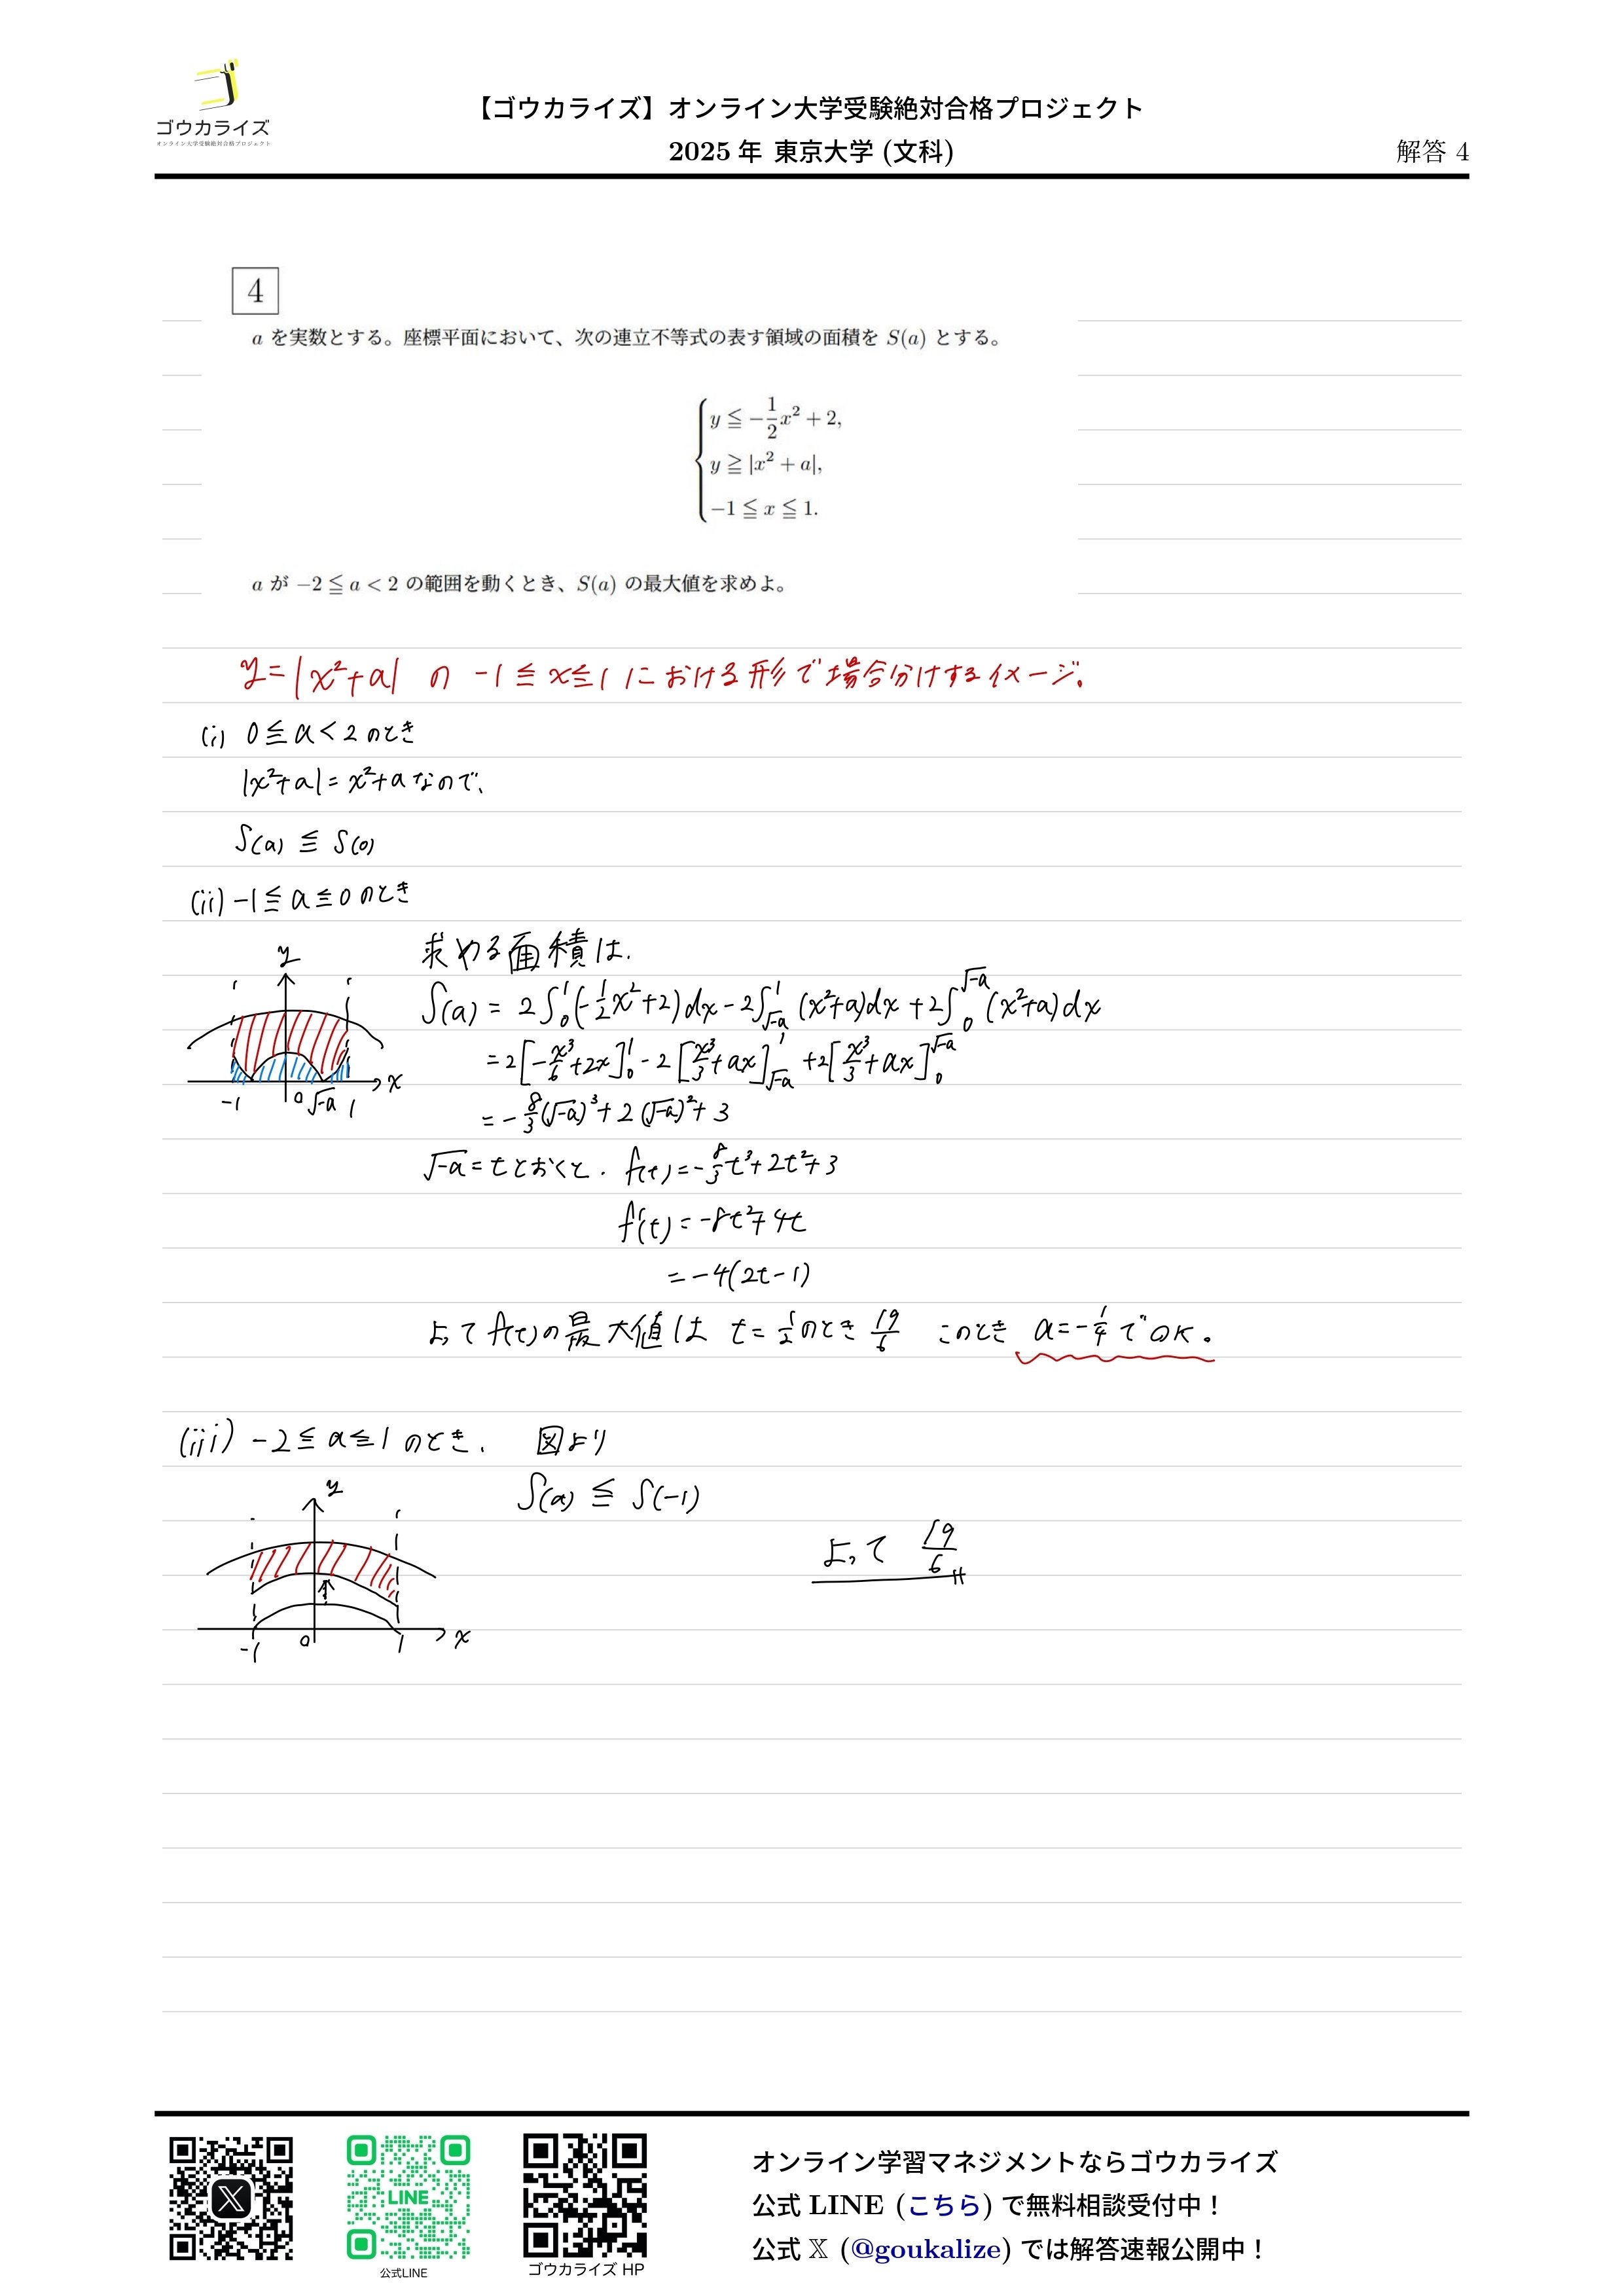 ゴウカライズ
オンライン大学受験絶対合格プロジェクト
【ゴウカライズ】オンライン大学受験絶対合格プロジェクト
2025 年 東京大学 (文科)
解答 4
4
a を実数とする。座標平面において、次の連立不等式の表す領域の面積を S(a) とする。
y ≦ -1/2 x² + 2,
y ≧ |x² + a|,
-1 ≦ x ≦ 1.
a が -2 ≦ a < 2 の範囲を動くとき、S(a) の最大値を求めよ。
y = |x²+a| の -1 ≦ x ≦ 1 における形で場合分けするイメージ。
(i) 0 ≦ a < 2 のとき
|x²+a| = x²+a なので、
S(a) ≦ S(0)
(ii) -1 ≦ a ≦ 0 のとき
求める面積は.
y
x
-1
0
√-a
1
S(a) = 2∫₀¹(-1/2 x²+2)dx - 2∫_{√-a}^{1}(x²+a)dx + 2∫₀^{√-a}(x²+a)dx
= 2[-x³/6+2x]₀¹ - 2[x³/3+ax]_{√-a}^{1} + 2[x³/3+ax]₀^{√-a}
= -8/3(√-a)³ + 2(√-a)² + 3
√-a = t とおくと. f(t) = -8/3 t³+2t²+3
f'(t) = -8t²+4t
= -4(2t-1)
よって f(t)の最大値は t=1/2のとき 19/6 このとき a=-1/4 でOK。
(iii) -2 ≦ a ≦ 1 のとき. 図より
S(a) ≦ S(-1)
y
x
-1
0
1
よって 19/6
LINE
公式LINE
ゴウカライズ HP
オンライン学習マネジメントならゴウカライズ
公式 LINE (こちら) で無料相談受付中！
公式 𝕏 (@goukalize) では解答速報公開中！